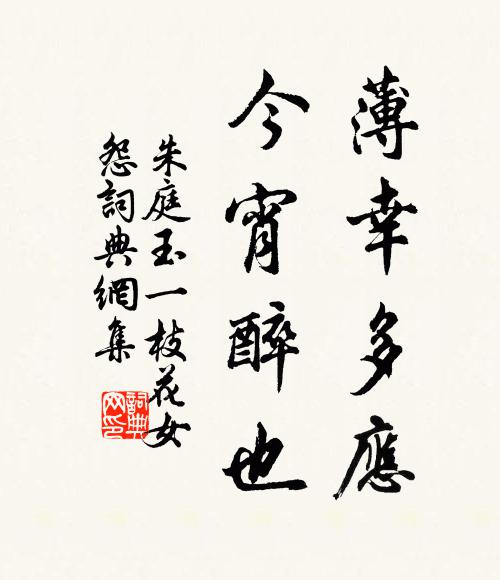 薄幸多應
今宵醉也
朱庭玉一枝花女
怨詞典網集
詞典网印